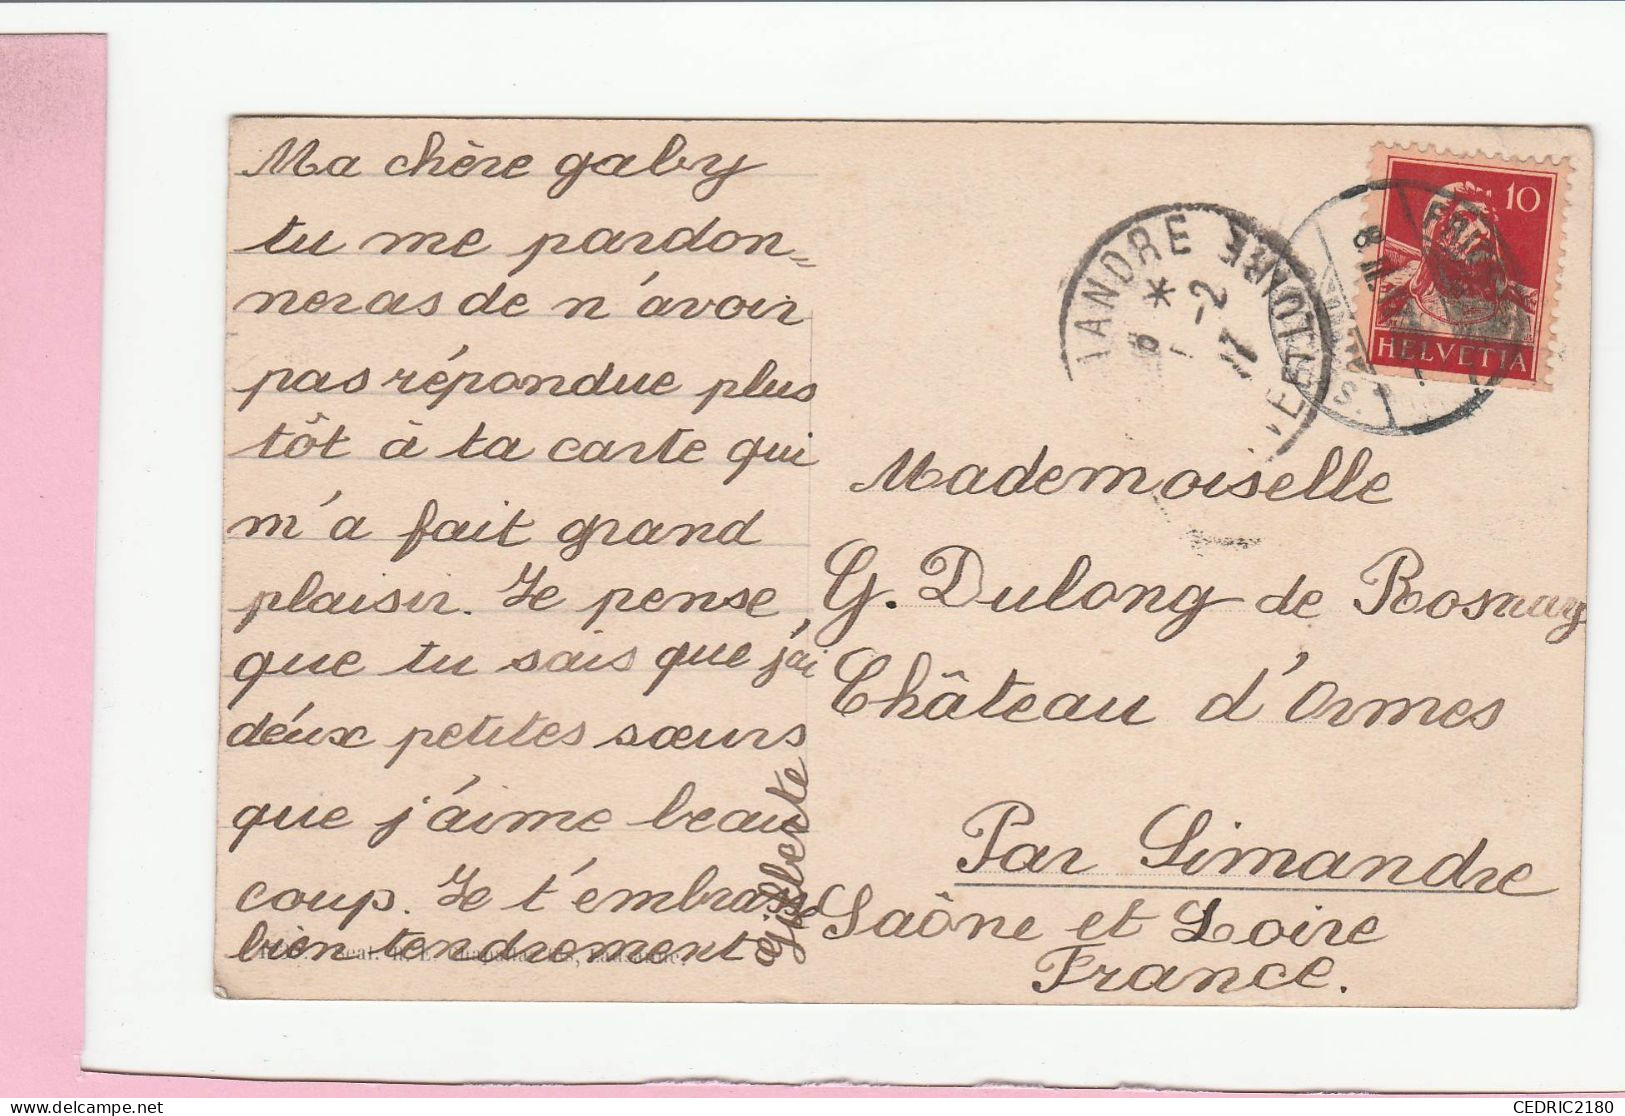 Ma chère gaby
tu me pardon=
neras de n'avoir
pas répondue plus
tôt à ta carte qui
m'a fait grand
plaisir. Je pense
que tu sais que j'ai
déux petites sœurs
que j'aime beau
coup. Je t'embrasse
bien tendrement
gilberte
10
HELVETIA
ANDRE
*
-2
17
ET LOIRE
Mademoiselle
G. Dulong de Rosnay
Château d'Ormes
Par Simandre
Saône et Loire
France.
CEDRIC2180